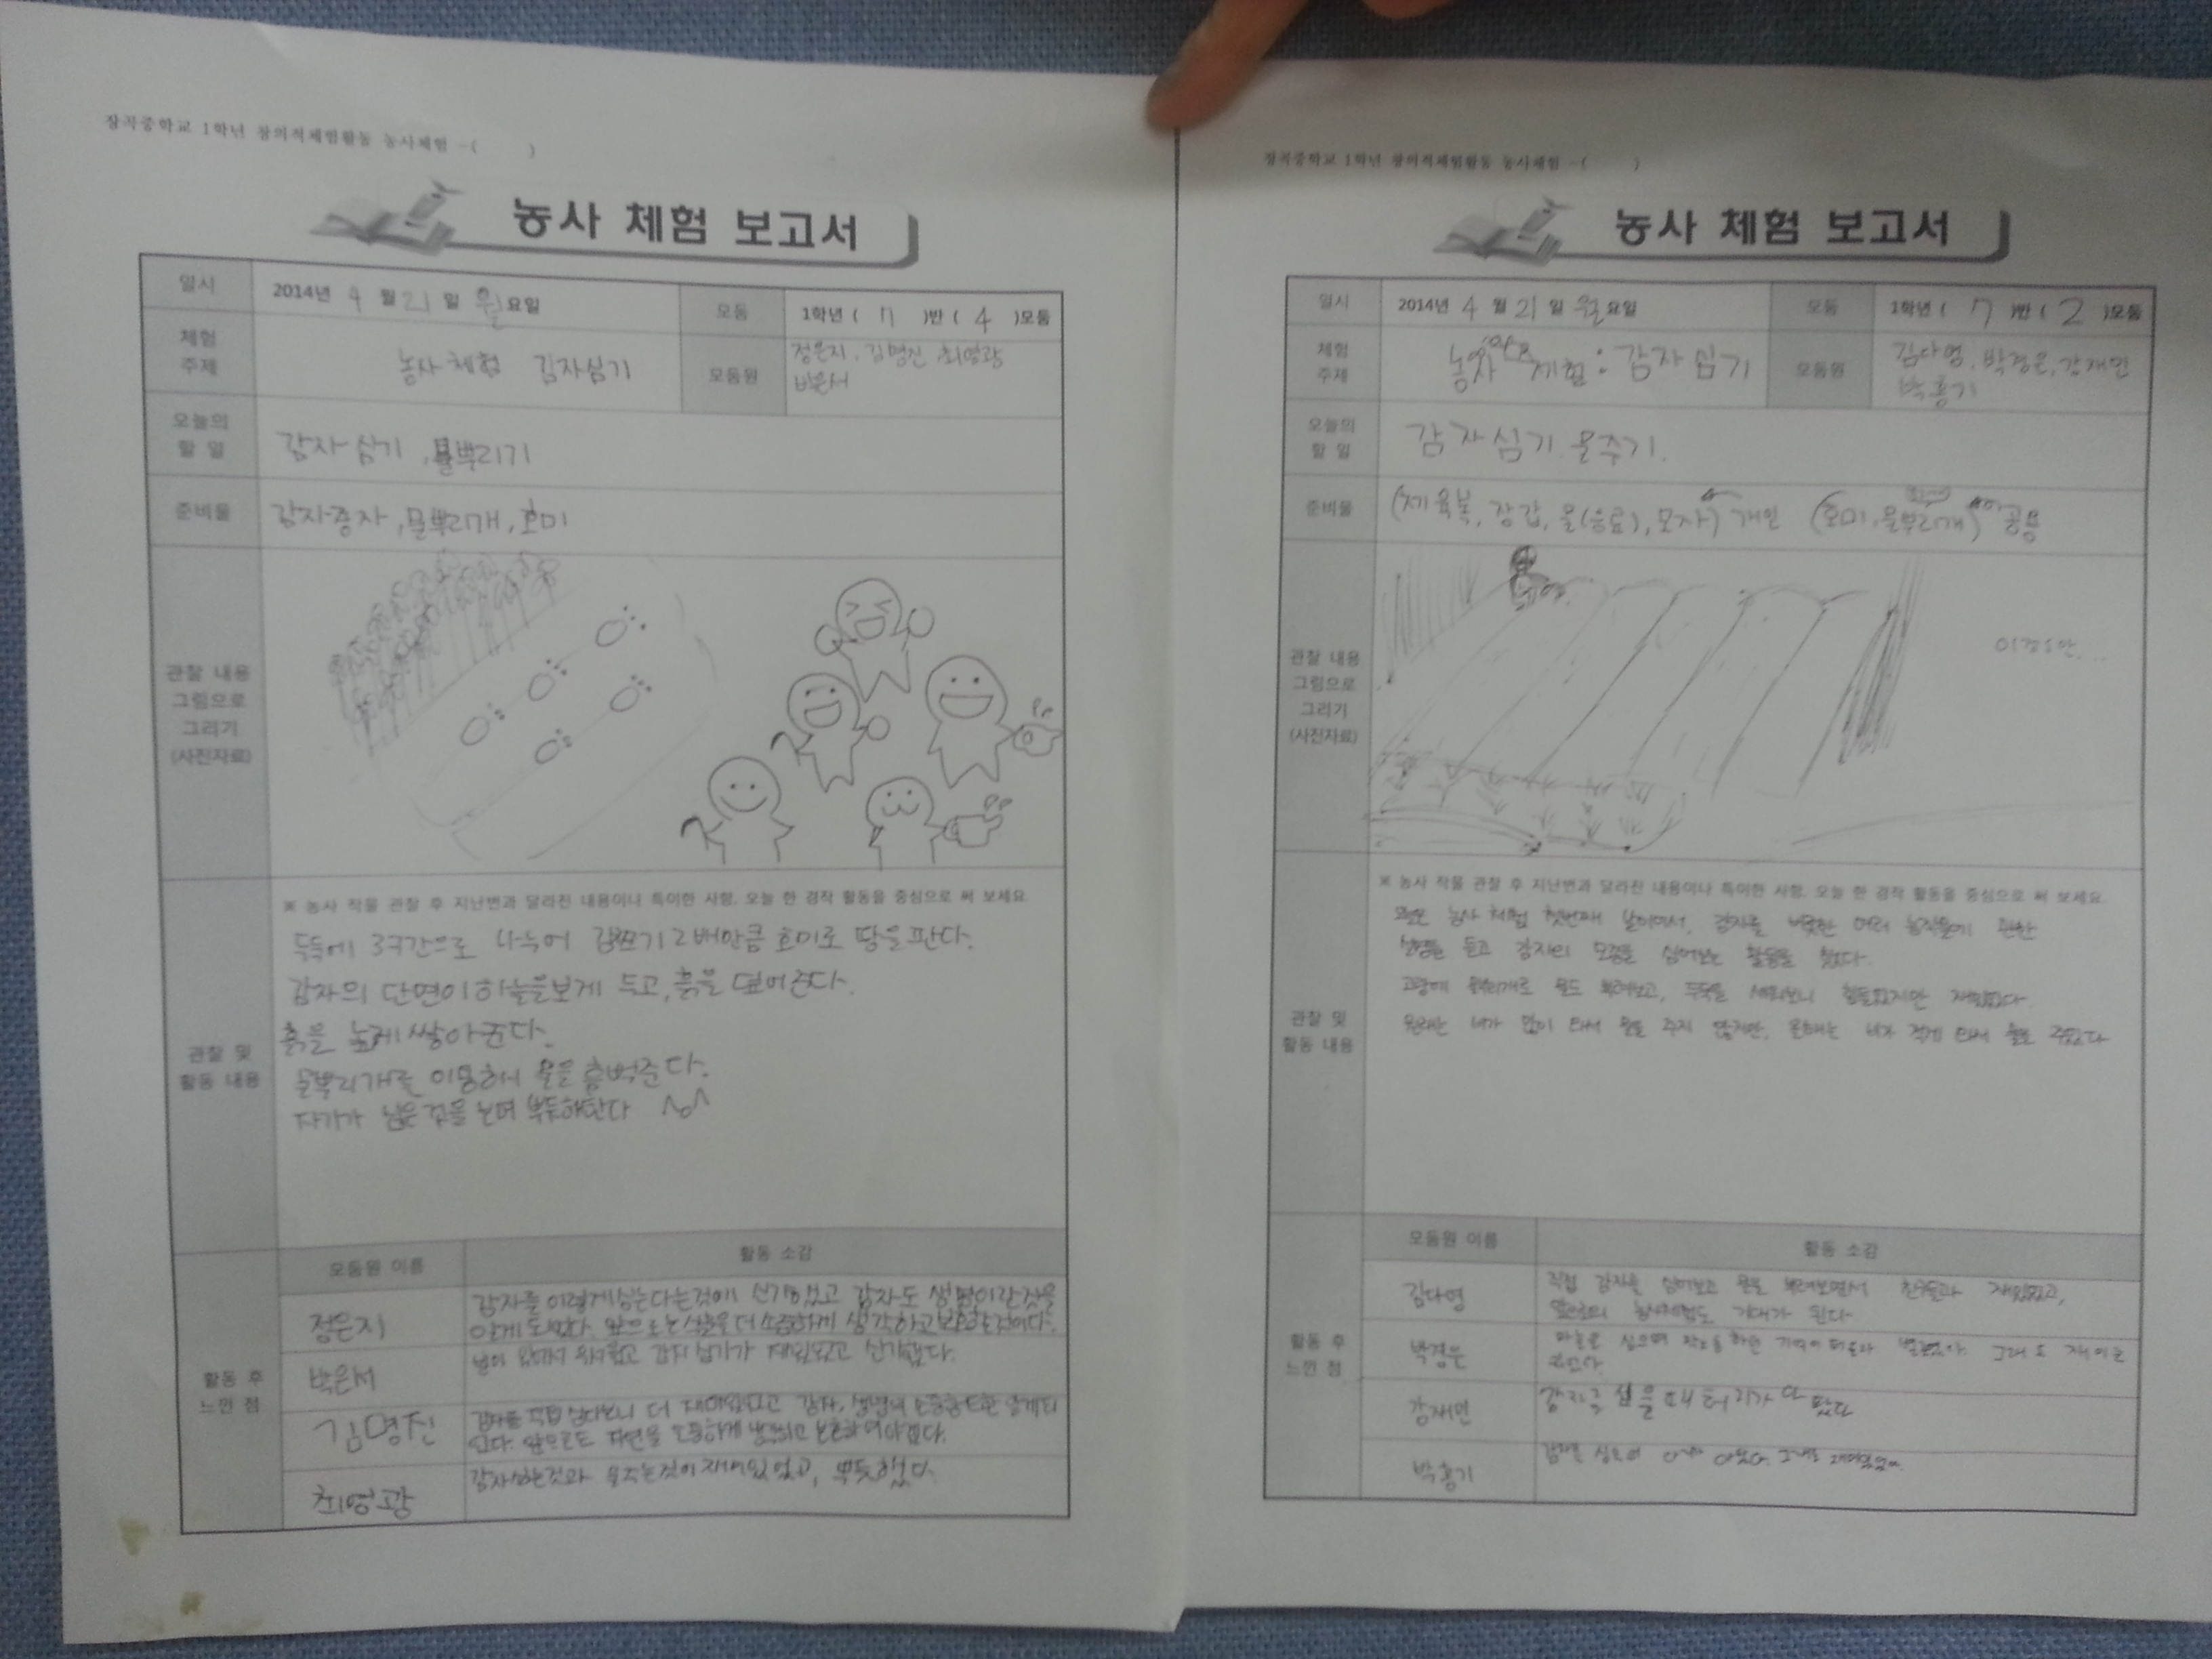 장곡중학교 1학년 창의적체험활동 농사체험 -( )
농사 체험 보고서
일시
2014년 4 월 21 일 월요일
모둠
1학년 ( 7 )반 ( 4 )모둠
체험
주제
농사체험 감자심기
모둠원
정은지, 김명진, 최영광
박은서
오늘의
할 일
감자심기, 물뿌리기
준비물
감자종자, 물뿌리개, 호미
관찰 내용
그림으로
그리기
(사진자료)
관찰 및
활동 내용
※ 농사 작물 관찰 후 지난번과 달라진 내용이나 특이한 사항, 오늘 한 경작 활동을 중심으로 써 보세요
두둑에 3구간으로 나누어 감자크기 2배만큼 호미로 땅을 판다.
감자의 단면이 하늘을보게 두고, 흙을 덮어준다.
흙을 높게 쌓아준다.
물뿌리개를 이용해서 물을 흠뻑준다.
자기가 심은 것을 보며 뿌듯해한다
활동 후
느낀 점
모둠원 이름
활동 소감
정은지
감자를 이렇게심는다는것에 신기했고 감자도 생명이란것을
알게 되었다. 앞으로는 식물을 더 소중하게 생각하고
박은서
감자 심기가 재밌었고 신기했다.
김명진
감자를 직접 심다보니 더 재미있었고 감자, 생명의 소중함 또한 알게되
었다. 앞으로도 자연을 소중하게 생각하고 보존하여야겠다.
최영광
감자심는것과 물주는것이 재미있었고, 뿌듯했다.
장곡중학교 1학년 창의적체험활동 농사체험 -( )
농사 체험 보고서
일시
2014년 4 월 21 일 월요일
모둠
1학년 ( 7 )반 ( 2 )모둠
체험
주제
농사 체험 : 감자 심기
모둠원
김다영, 박경은, 강재민
박홍기
오늘의
할 일
감자심기. 물주기.
준비물
(체육복, 장갑, 물(음료), 모자) 개인 (호미, 물뿌리개) 공용
관찰 내용
그림으로
그리기
(사진자료)
이정도만...
관찰 및
활동 내용
※ 농사 작물 관찰 후 지난번과 달라진 내용이나 특이한 사항, 오늘 한 경작 활동을 중심으로 써 보세요
오늘은 농사 체험 첫번째 날이여서, 감자를 비롯한 여러 농작물에 관한
설명을 듣고 감자의 모종을 심어보는 활동을 했었다.
물뿌리개로 물도 뿌려보고, 두둑을 세워보니 힘들었지만 재밌었다.
원래는 비가 많이 와서 물을 주지 않지만, 올해는 비가 적게 와서 물도 주었다
활동 후
느낀 점
모둠원 이름
활동 소감
김다영
직접 감자를 심어보고 물을 뿌려보면서 친구들과 재밌었고,
기대가 된다.
박경은
심으며 기억이 그래도 재미는
있었다.
강재민
감자를 심을때 허리가 다
박홍기
감자를 심으며 그래도 재미있었다.